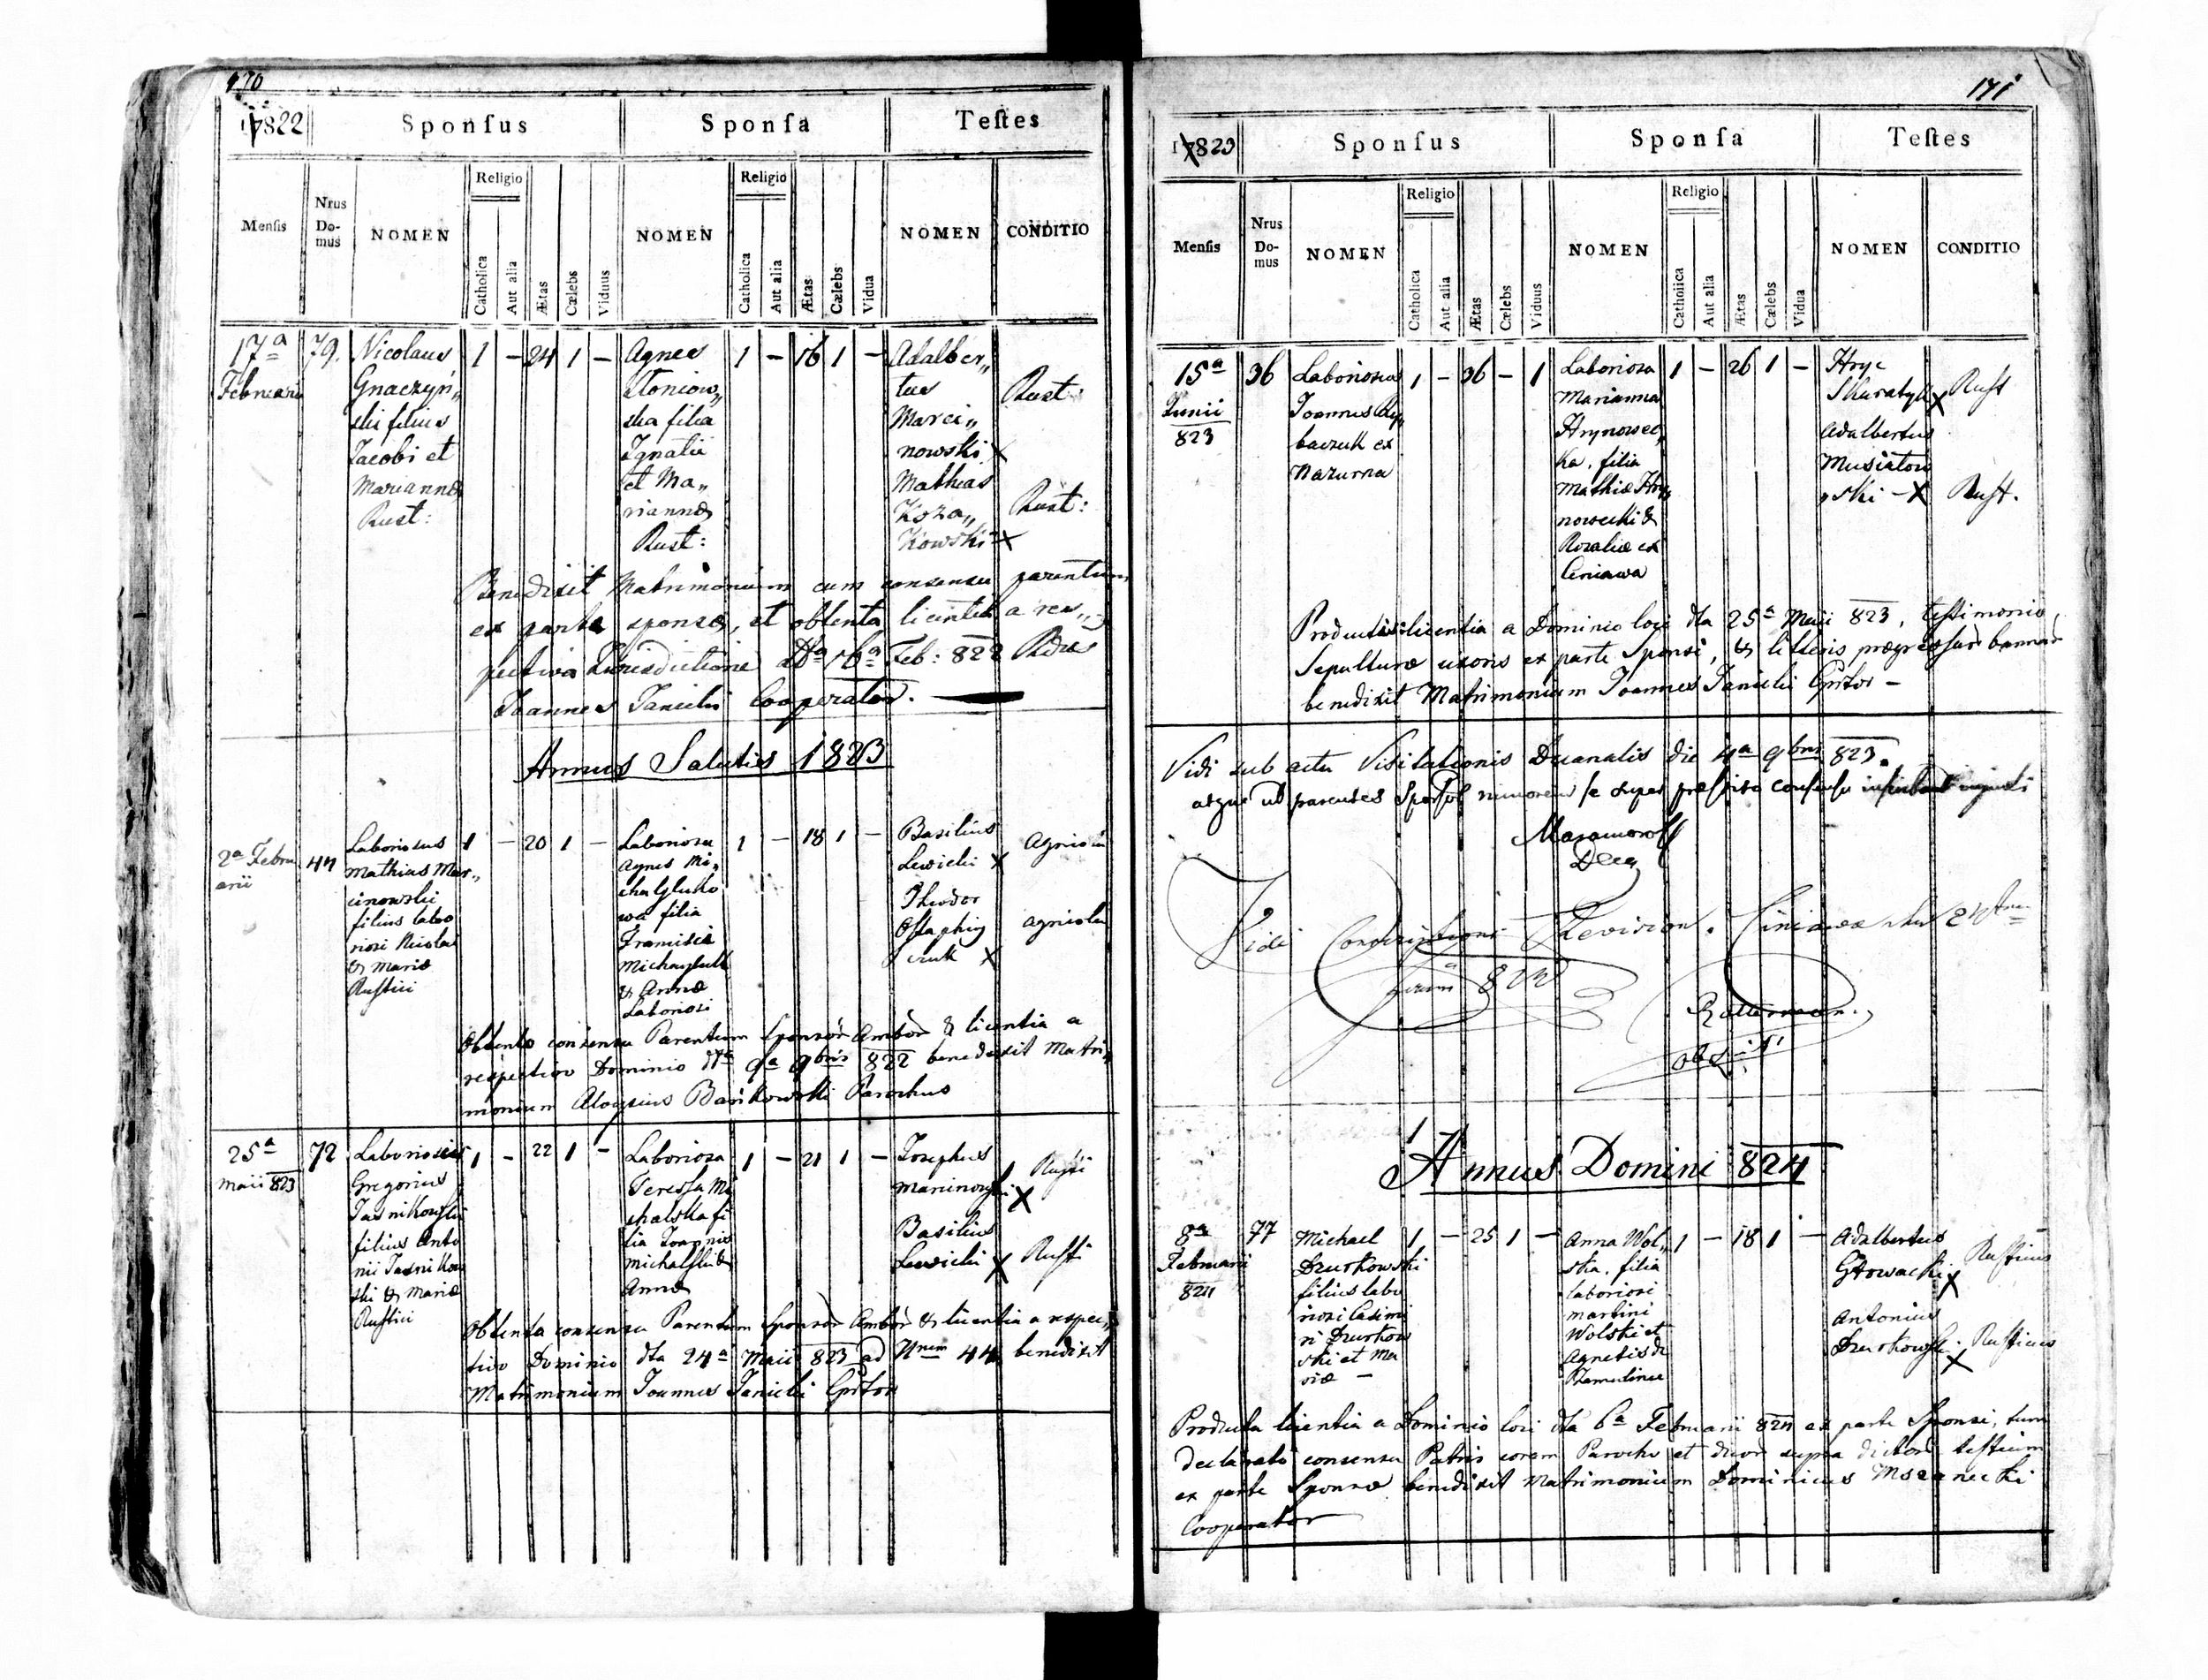 170
17822
Sponſus
Sponſa
Teſtes
Menſis
Nrus
Do-
mus
NOMEN
Religio
Catholica
Aut alia
Ætas
Cælebs
Viduus
NOMEN
Religio
Catholica
Aut alia
Ætas
Cælebs
Vidua
NOMEN
CONDITIO
17ª
Februarii
79.
Nicolaus
Gnaczyń„
ski filius
Jacobi et
Mariannæ
Rust:
1 – 24 1 –
Agnes
Stoniow„
ska filia
Ignatii
et Ma„
riannæ
Rust:
1 – 16 1 –
Adalber„
tus
Marci„
nowski X
Mathias
Koza„
Kowski X
Rust:
Rust:
Benedixit Matrimonium cum consensu parentum
ex parte sponsæ, et obtenta licentia a res„
pectiva Jurisdictione Dta 16ª Feb: 822
Joannes Janicki Cooperator.
Annus Salutis 1823
2ª Febru
arii
44
Laboriosus
Mathias Mar„
cinowski
filius labo
riosi Nicolai
& Mariæ
Rustici
1 – 20 1 –
Laboriosa
Agnes Mi„
chayluko
wa filia
Francisci
Michayluk
& Annæ
Laboriosi
1 – 18 1 –
Basilius
Lewicki X
Theodor
Ostaphiy
czuk X
agricola
agricola
Obtento consensu Parentum Sponsor Ambor & licentia a
respectivo Dominio dta 9ª 9bris 822 benedixit Matri„
monium Aloysius Bańkowski Parochus
25ª
Maii 823
72
Laboriosus
Gregorius
Jasnikowski
filius Anto
nii Jasnikow
ski & Mariæ
Rustici
1 – 22 1 –
Laboriosa
Teressa Mi
chalska fi
lia Joannis
Michalski &
Annæ
1 – 21 1 –
Josephus
Marcinowski
X
Basilius
Lewicki X
Rusti
Rusti
Obtento consensu Parentum Sponsor Ambor & licentia a respec„
tivo Dominio dta 24ª Maii 823 ad Nrum 44 benedixit
Matrimonium Joannes Janicki Cprtor
171
17823
Sponſus
Sponſa
Teſtes
Menſis
Nrus
Do-
mus
NOMEN
Religio
Catholica
Aut alia
Ætas
Cælebs
Viduus
NOMEN
Religio
Catholica
Aut alia
Ætas
Cælebs
Vidua
NOMEN
CONDITIO
15ª
Junii
823
36
Laboriosus
Joannes Ry„
baczuk ex
Nazurna
1 – 36 – 1
Laboriosa
Marianna
Hrynowec„
ka. filia
Mathiæ Hry„
nowecki &
Rozaliæ ex
Ceniawa
1 – 26 1 –
Hryc
Skuratyk X
Adalbertus
Musiatow
„ski – X
Rust
Rust.
Producta licentia a Dominio loci dta 25ª Maii 823, testimonio
Sepulturæ uxoris ex parte Sponsi, & litteris progressar bannor
benedixit Matrimonium Joannes Janicki Cprtor –
Vidi sub actu Visitationis Decanalis die 4ª 9bris 823.
atque ut parentes
Decan
Vidi Conscriptionis Revision.
823
Annus Domini 824
8ª
Februarii
824
77
Michael
Dzurkowski
filius labo
riosi Casimi
ri Dzurkow
ski et Ma
riæ –
1 – 25 1 –
Anna Wol„
ska. filia
laboriosi
Martini
Wolski et
Agnetis de
1 – 18 1 –
Adalbertus
Głowacki X
Antonius
Dzurkowski
X
Rusticus
Rusticus
Producta licentia a Dominio loci dta 6ª Februarii 824 ex parte Sponsi, tum
declarato consensu Patris coram Parocho et duor supra dictor testium
ex parte Sponsæ benedixit Matrimonium Dominicus Mszanecki
Cooperator